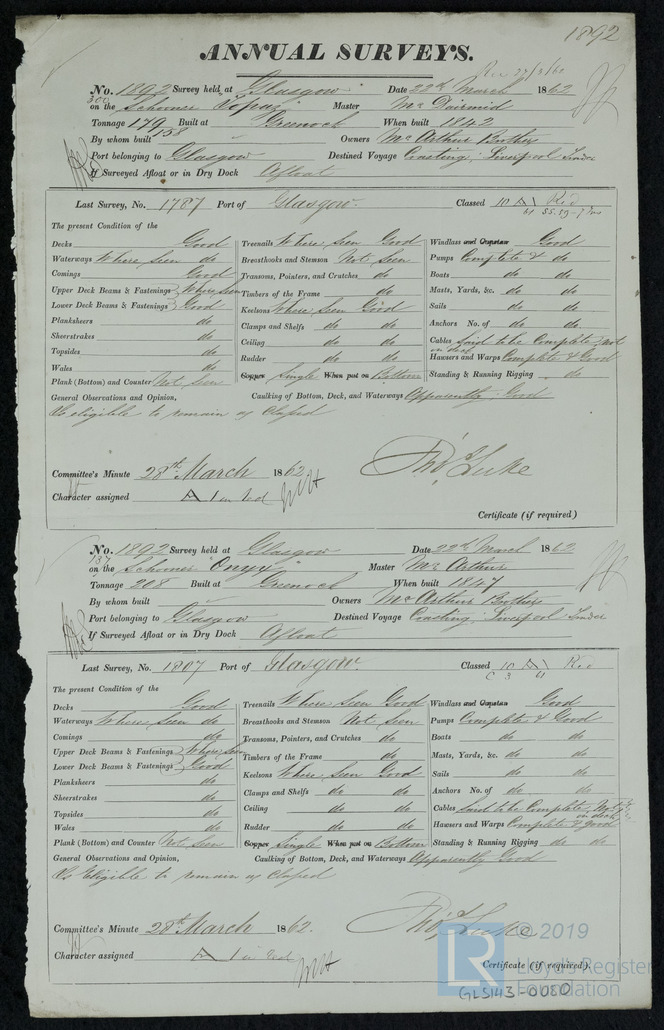 1892
ANNUAL SURVEYS.
No. 1892 Survey held at Glasgow Date 22nd March 1862
on the Schooner "Topaz" Master Mc Diarmid
Tonnage 179 Built at Greenock When built 1842
158
By whom built Owners McArthur Brothers
Port belonging to Glasgow Destined Voyage Coasting, Liverpool
If Surveyed Afloat or in Dry Dock Afloat
Last Survey, No. 1787 Port of Glasgow. Classed 10 A1 Red
61
The present Condition of the
Decks Good Treenails Where Seen Good Windlass and Capstan Good
Waterways Where Seen do Breasthooks and Stemson Not Seen Pumps Complete & do
Comings Good Transoms, Pointers, and Crutches do Boats do do
Upper Deck Beams & Fastenings Where Seen Timbers of the Frame do Masts, Yards, &c. do do
Lower Deck Beams & Fastenings Good Keelsons Where Seen Good Sails do do
Planksheers do Clamps and Shelfs do do Anchors No. of do do
Sheerstrakes do Ceiling do do Cables Said to be Complete, Not
on deck
Topsides do Rudder do do Hawsers and Warps Complete & Good
Wales do Copper Single When put on Bottom Standing & Running Rigging do
Plank (Bottom) and Counter Not Seen
General Observations and Opinion, Caulking of Bottom, Deck, and Waterways Apparently Good
Is eligible to remain as Classed
Thos. Luke
Committee's Minute 28th March 1862
Character assigned A 1 in red
Certificate (if required)
No. 1892 Survey held at Glasgow Date 22nd March 1862
on the Schooner "Onyx" Master Mc Arthur
Tonnage 208 Built at Greenock When built 1847
By whom built Owners McArthur Brothers
Port belonging to Glasgow Destined Voyage Coasting, Liverpool
If Surveyed Afloat or in Dry Dock Afloat
Last Survey, No. 1807 Port of Glasgow. Classed 10 A1 Red
C 3 61
The present Condition of the
Decks Good Treenails Where Seen Good Windlass and Capstan Good
Waterways Where Seen do Breasthooks and Stemson Not Seen Pumps Complete & Good
Comings do Transoms, Pointers, and Crutches do Boats do do
Upper Deck Beams & Fastenings Where Seen Timbers of the Frame do Masts, Yards, &c. do do
Lower Deck Beams & Fastenings Good Keelsons Where Seen Good Sails do do
Planksheers do Clamps and Shelfs do do Anchors No. of do do
Sheerstrakes do Ceiling do do Cables Said to be Complete, Not
on deck
Topsides do Rudder do do Hawsers and Warps Complete & good
Wales do Copper Single When put on Bottom Standing & Running Rigging do do
Plank (Bottom) and Counter Not Seen
General Observations and Opinion, Caulking of Bottom, Deck, and Waterways Apparently Good
Is Eligible to remain as Classed
Thos. Luke
Committee's Minute 28th March 1862.
Character assigned A 1 in red
Certificate (if required).
© 2019
Lloyd's Register
Foundation
GLS143-0080